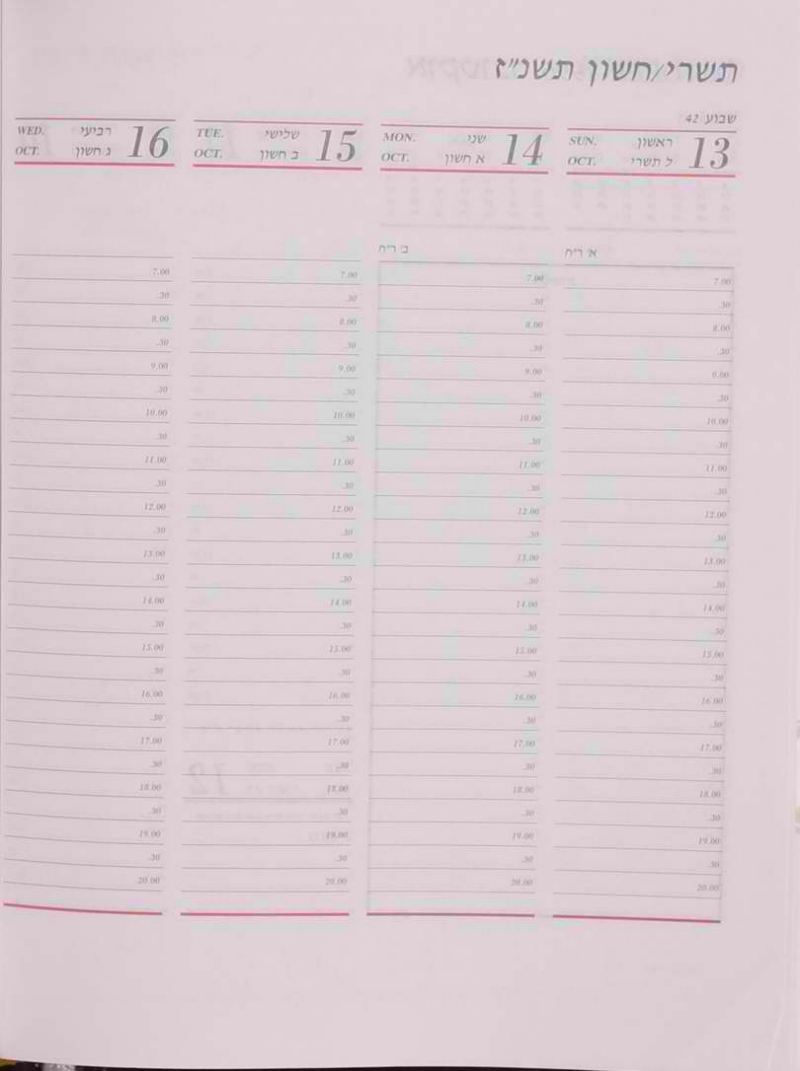 תשרי/חשון תשנ״ז
שבוע 42
ראשון SUN.
ל תשרי OCT.
13
שני MON.
א חשון OCT.
14
שלישי TUE.
ב חשון OCT.
15
רביעי WED.
ג חשון OCT.
16
א׳ ר״ח
ב׳ ר״ח
7.00 7.00 7.00 7.00
.30 .30 .30 .30
8.00 8.00 8.00 8.00
.30 .30 .30 .30
9.00 9.00 9.00 9.00
.30 .30 .30 .30
10.00 10.00 10.00 10.00
.30 .30 .30 .30
11.00 11.00 11.00 11.00
.30 .30 .30 .30
12.00 12.00 12.00 12.00
.30 .30 .30 .30
13.00 13.00 13.00 13.00
.30 .30 .30 .30
14.00 14.00 14.00 14.00
.30 .30 .30 .30
15.00 15.00 15.00 15.00
.30 .30 .30 .30
16.00 16.00 16.00 16.00
.30 .30 .30 .30
17.00 17.00 17.00 17.00
.30 .30 .30 .30
18.00 18.00 18.00 18.00
.30 .30 .30 .30
19.00 19.00 19.00 19.00
.30 .30 .30 .30
20.00 20.00 20.00 20.00